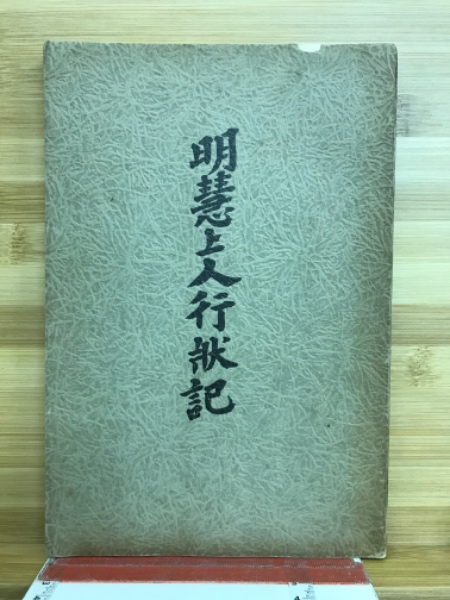 明慧上人行状記